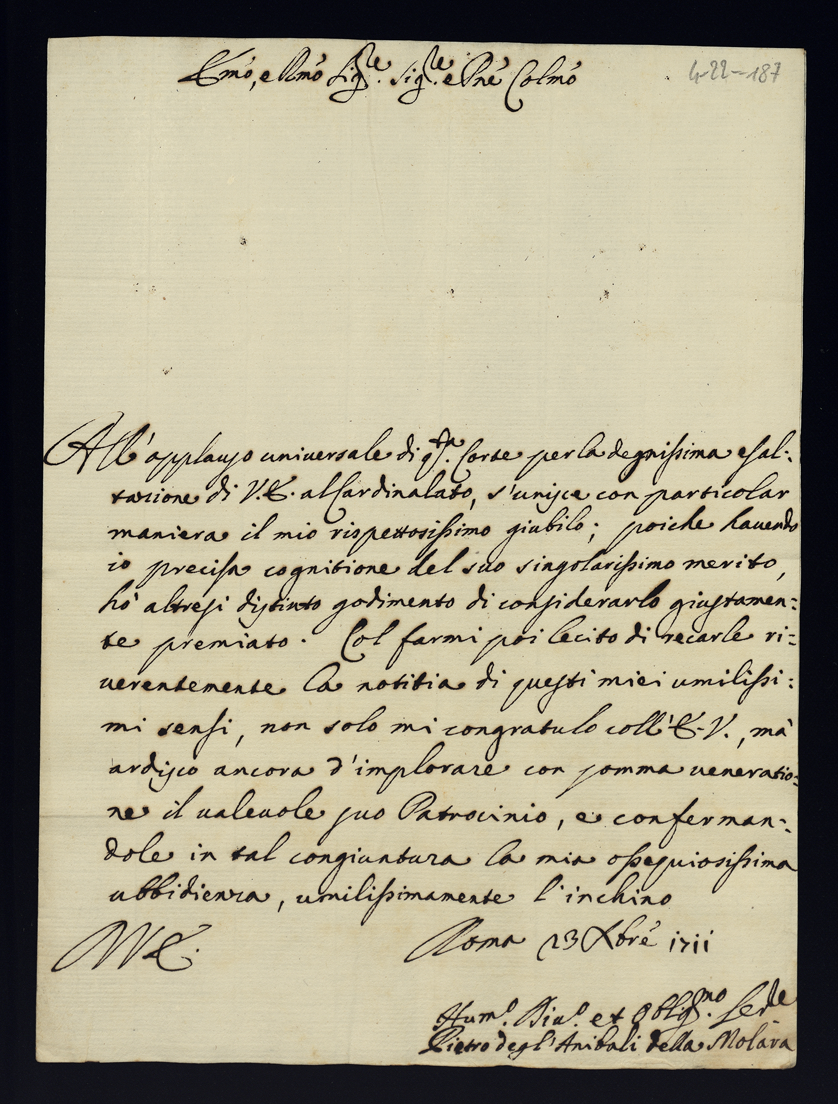 Emo, e Rmo Sig.re Sig.re e Pne Colmo
4-22-187
All'applauso universale di q.sta Corte per la degnissima esal:
tazione di V.E. al Cardinalato, s'unisce con particolar
maniera il mio rispettosissimo giubilo; poiche havendo
io precisa cognitione del suo singolarissimo merito,
hò altresi distinto godimento di considerarlo giustamen:
te premiato. Col farmi poi lecito di recarle ri:
verentemente la notitia di questi miei umilissi:
mi sensi, non solo mi congratulo coll'E.V., mà
ardisco ancora d'implorare con somma veneratio:
ne il valevole suo Patrocinio, e conferman:
dole in tal congiuntura la mia ossequiosissima
ubbidienza, umilissimamente l'inchino
Roma 23 Xbre 1711
Hum.o Dia.o et Oblig.mo Ser.re
Pietro degl'Anibali della Molara